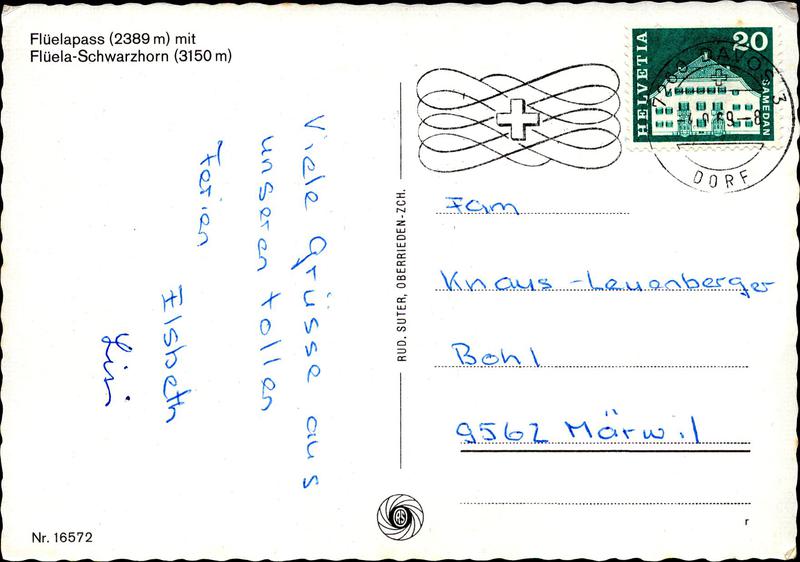 Flüelapass (2389 m) mit
Flüela-Schwarzhorn (3150 m)
Viele Grüsse aus
unseren tollen
Ferien
Elsbeth
Nr. 16572
RUD. SUTER, OBERRIEDEN-ZCH.
HELVETIA
20
SAMEDAN
7260 DAVOS 3
69-8
DORF
Fam
Knaus-Leuenberger
Bohl
9562 Märwil
r